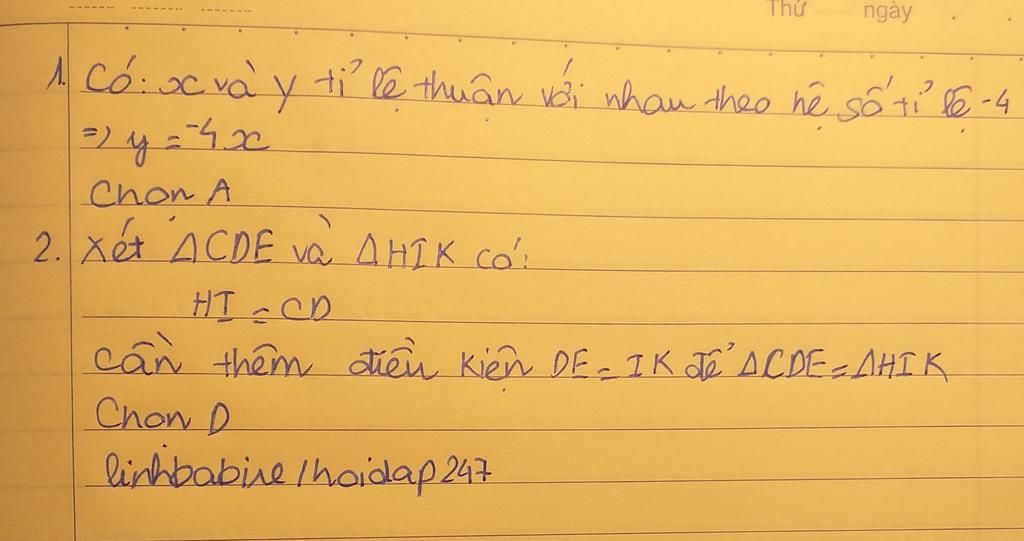 Thứ ngày
1. Có: x và y tỉ lệ thuận với nhau theo hệ số tỉ lệ -4
=> y = -4x
Chọn A
2. Xét ΔCDE và ΔHIK có:
HI = CD
Cần thêm điều kiện DE = IK để ΔCDE = ΔHIK
Chọn D
linhbabine/hoidap247